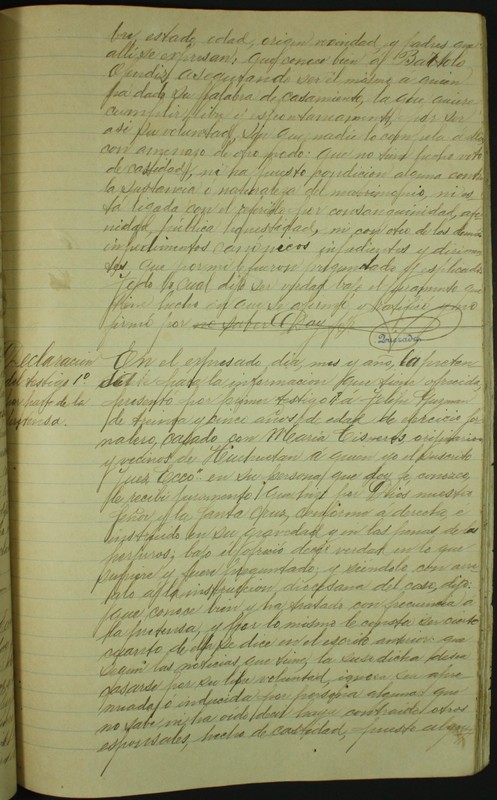 bre, estado, edad, origen vecindad, y padres que
alli se expresan: que conoce bien á Bartolo
asegurando ser él mismo a quien
ha dado su palabra de casamiento, la que quiere
cumplir libre y espontaneamente por ser
asi su voluntad, sin que nadie le compela a ello
con amenaza de otro modo: que no tiene hecho voto
de castidad, ni ha puesto condicion alguna contra
la sustancia o naturaleza del matrimonio, ni es
tá ligada con el referido por consanguinidad, afi
nidad, pública honestidad, ni con otro de los demás
impedimentos canonicos impedientes y dirimen
tes, que por mi le fueron preguntados y explicados
Todo lo cual dijo ser verdad bajo el juramento que
tiene hecho en que se afirmó y ratificó y no
firmó por no saber. Doy fé
Quezada
Declaracion
del testigo 1º
por parte de la
pretensa.
En el expresado dia, mes y año, la preten
sa para la informacion que tiene ofrecida,
presentó por primer testigo á Felipe Guzman
de treinta y cinco años de edad de ejercicio jor
nalero, casado con Maria Cisneros, originarios
y vecinos de Huehuetan a quien yo el presente
Juez Ecco. en su persona, que doy fé conozco,
le recibí juramento que hizo por Dios nuestro
Señor y la Santa Cruz, conforme a derecho, e
instruido en su gravedad y en las penas de los
perjuros, bajo el ofreció decir verdad en lo que
supiere y fuere preguntado; y siendolo con arre
glo a la instruccion diocesana del caso, dijo:
que conoce bien y ha tratado con frecuencia a
la pretensa, y por lo mismo le consta ser cierto
cuanto de ella se dice en el escrito anterior que
segun las noticias que tiene, la susodicha desea
casarse por su libre voluntad, ignora sea apre
miada o inducida por persona alguna; que
no sabe ni ha oido decir haya contraido otros
esponsales, hecho de castidad, puesto alguna